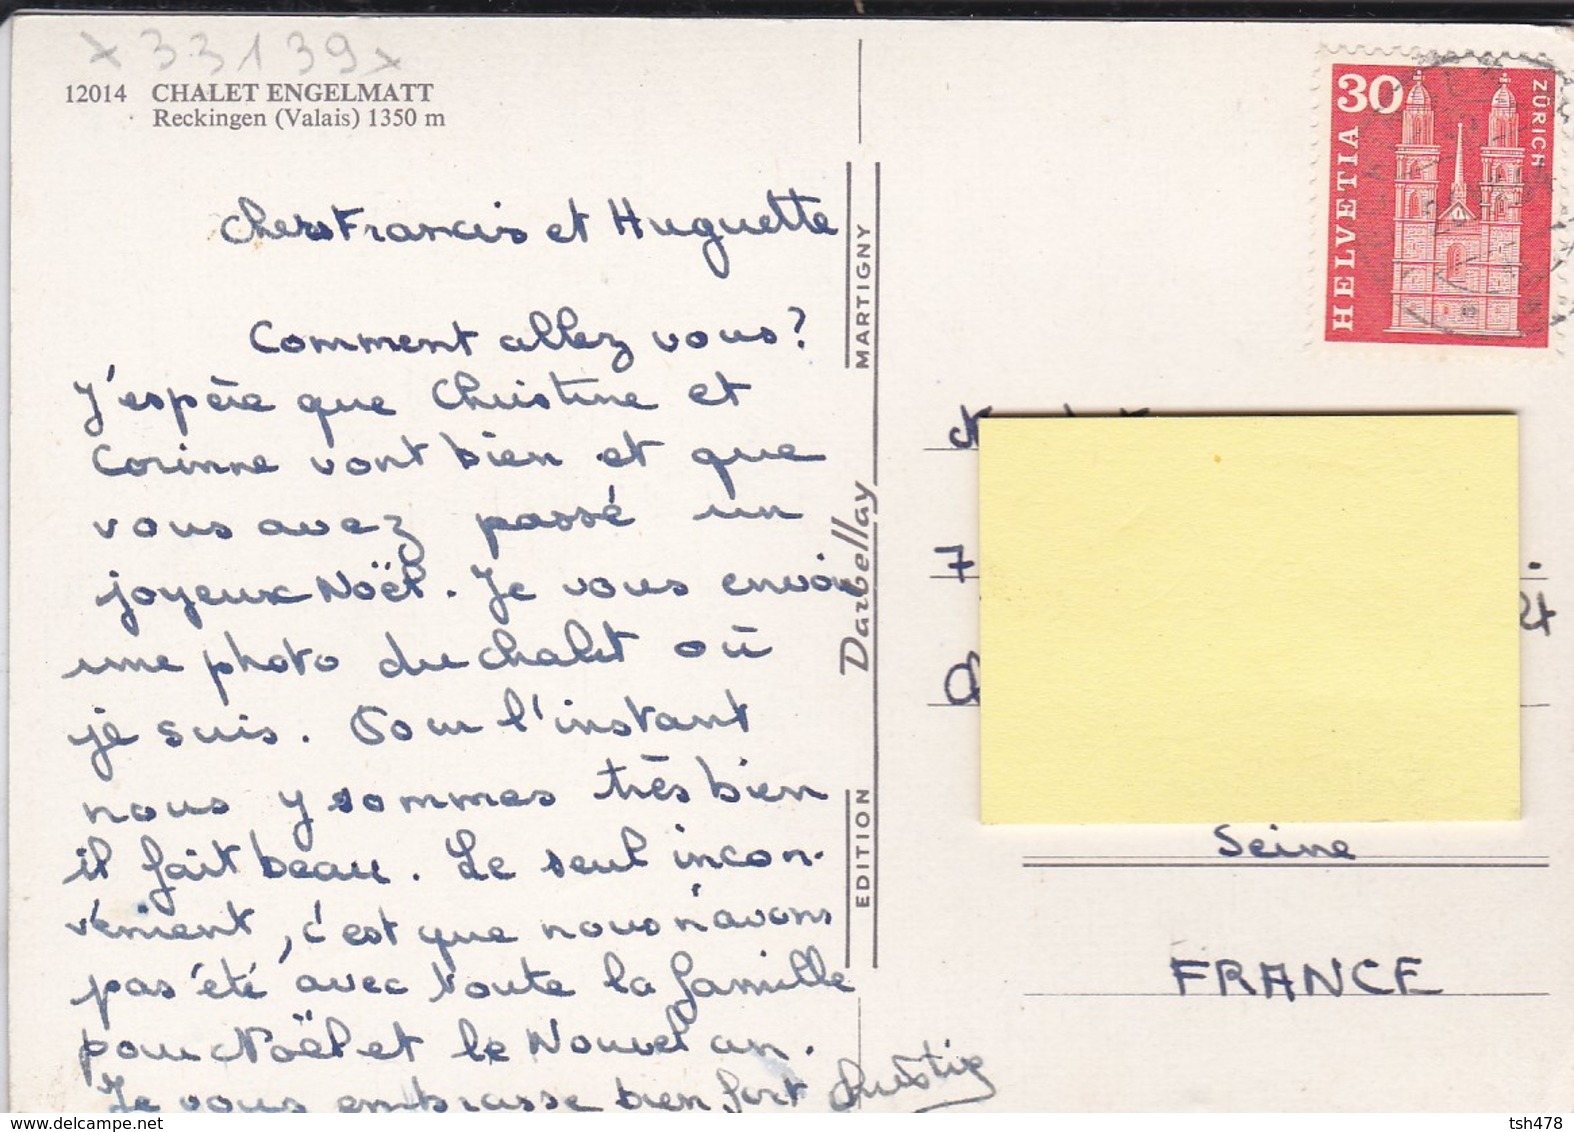 x 33139x
12014 CHALET ENGELMATT
Reckingen (Valais) 1350 m
Chers Francis et Huguette
Comment allez vous?
J'espère que Christine et
Corinne vont bien et que
vous avez passé un
joyeux Noël. Je vous envoie
une photo du chalet où
je suis. Pour l'instant
nous y sommes très bien
il fait beau. Le seul incon-
vénient, c'est que nous n'avons
pas été avec toute la famille
pour Noël et le Nouvel an.
Je vous embrasse bien fort
EDITION Darbellay MARTIGNY
30
HELVETIA
ZÜRICH
7
Seine
FRANCE
delcampe.net
tsh478